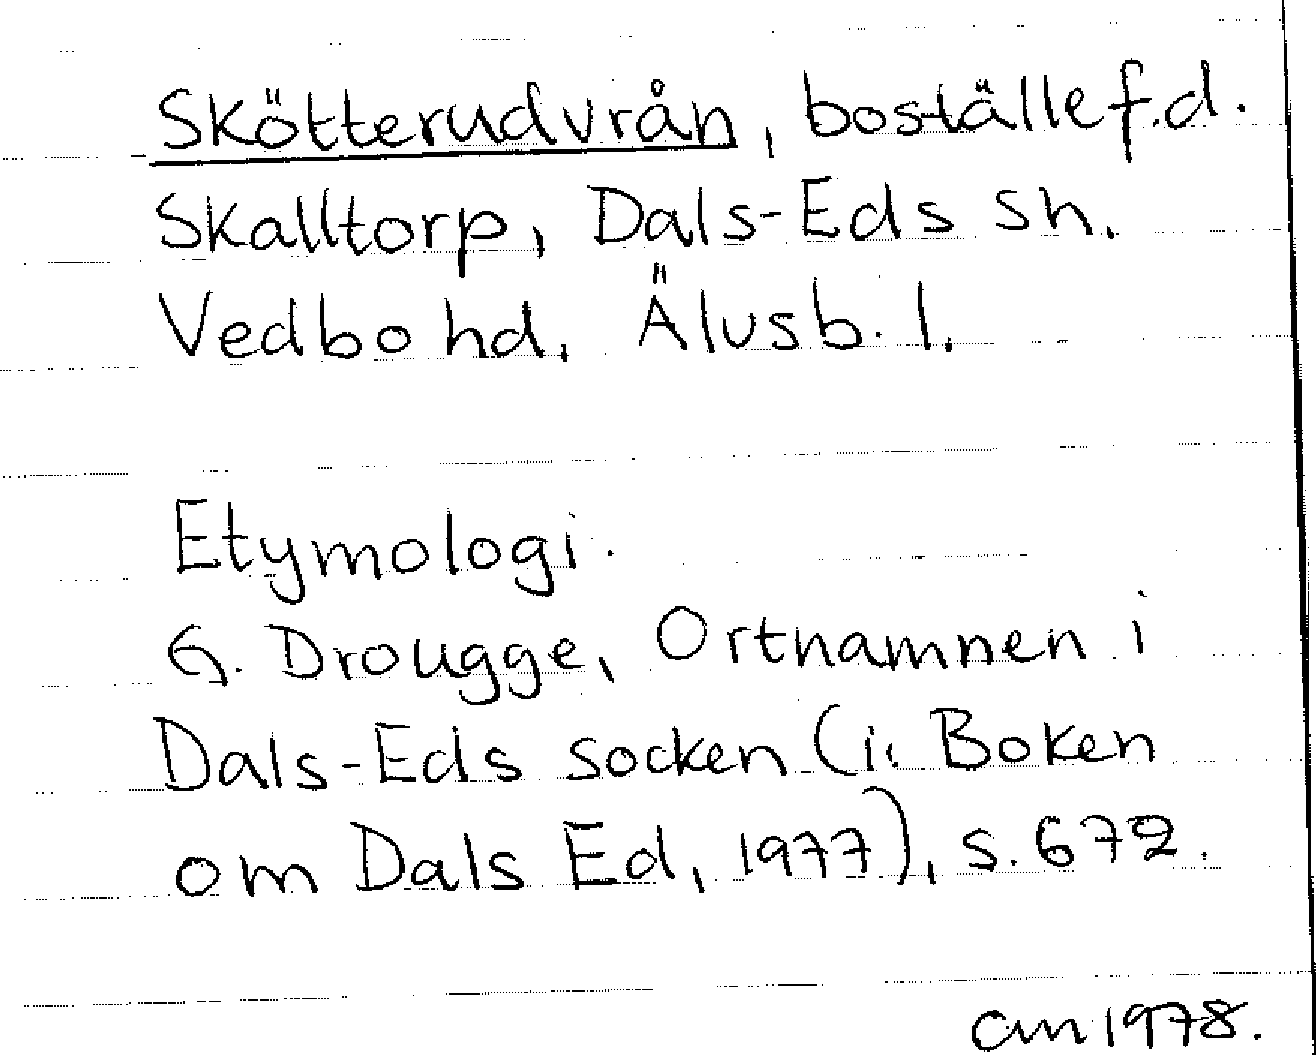 Skötterudvrån, boställe f.d.
Skalltorp, Dals-Eds sn.
Vedbo hd, Älvsb. l.
Etymologi.
G. Drougge, Ortnamnen i
Dals-Eds socken (i: Boken
om Dals Ed, 1977), s. 672.
am 1978.